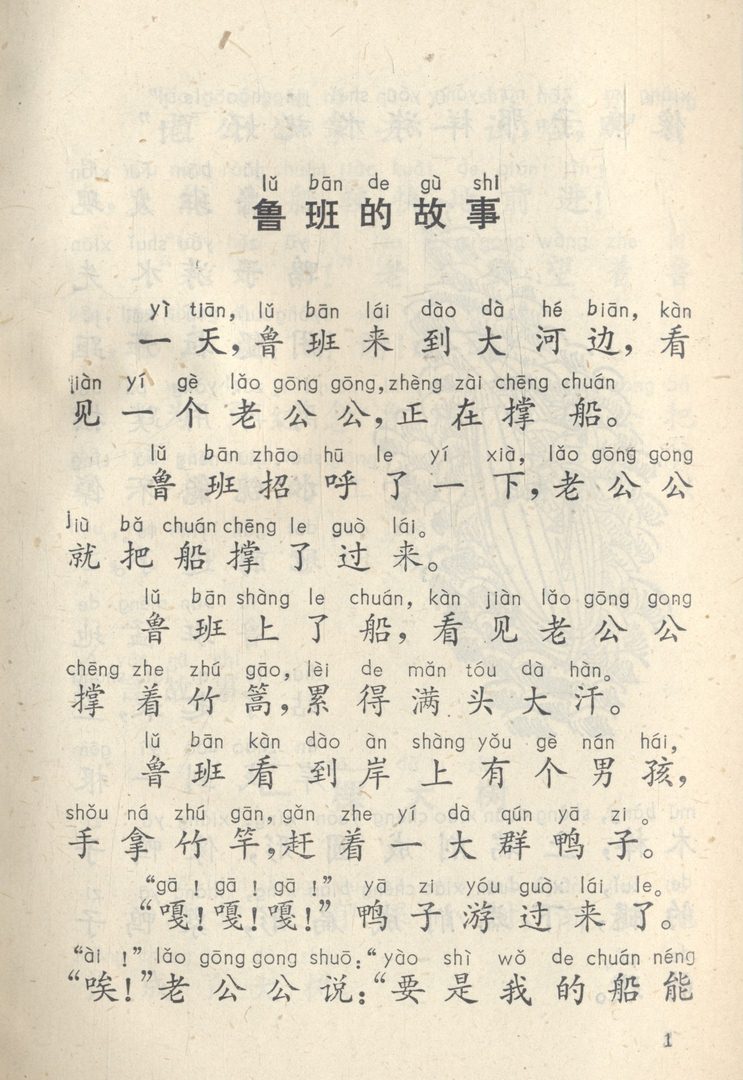 lǔ bān de gù shi
鲁班的故事
yì tiān, lǔ bān lái dào dà hé biān, kàn
一天，鲁班来到大河边，看
jiàn yí gè lǎo gōng gōng, zhèng zài chēng chuán
见一个老公公，正在撑船。
lǔ bān zhāo hū le yí xià, lǎo gōng gong
鲁班招呼了一下，老公公
jiù bǎ chuán chēng le guò lái。
就把船撑了过来。
lǔ bān shàng le chuán, kàn jiàn lǎo gōng gong
鲁班上了船，看见老公公
chēng zhe zhú gāo, lèi de mǎn tóu dà hàn。
撑着竹篙，累得满头大汗。
lǔ bān kàn dào àn shàng yǒu gè nán hái,
鲁班看到岸上有个男孩，
shǒu ná zhú gān, gǎn zhe yí dà qún yā zi。
手拿竹竿，赶着一大群鸭子。
“gā! gā! gā!” yā zi yóu guò lái le。
“嘎！嘎！嘎！”鸭子游过来了。
“ài!” lǎo gōng gong shuō: “yào shì wǒ de chuán néng
“唉！”老公公说：“要是我的船能
1